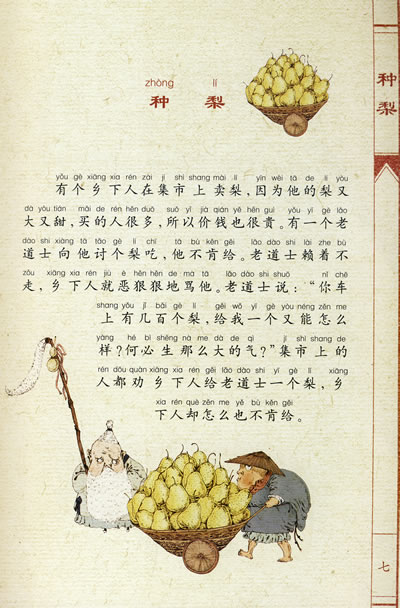 zhòng lí
种 梨
yǒu gè xiāng xia rén zài jí shì shang mài lí yīn wèi tā de lí yòu
有个乡下人在集市上卖梨,因为他的梨又
dà yòu tián mǎi de rén hěn duō suǒ yǐ jià qián yě hěn guì yǒu yí gè lǎo
大又甜,买的人很多,所以价钱也很贵。有一个老
dào shi xiàng tā tǎo gè lí chī tā bù kěn gěi lǎo dào shi lài zhe bù
道士向他讨个梨吃,他不肯给。老道士赖着不
zǒu xiāng xia rén jiù è hěn hěn de mà tā lǎo dào shi shuō nǐ chē
走,乡下人就恶狠狠地骂他。老道士说:“你车
shang yǒu jǐ bǎi gè lí gěi wǒ yí gè yòu néng zěn me
上有几百个梨,给我一个又能怎么
yàng hé bì shēng nà me dà de qì jí shì shang de
样?何必生那么大的气?”集市上的
rén dōu quàn xiāng xia rén gěi lǎo dào shi yí gè lí xiāng
人都劝乡下人给老道士一个梨,乡
xia rén què zěn me yě bù kěn gěi
下人却怎么也不肯给。
种梨
七